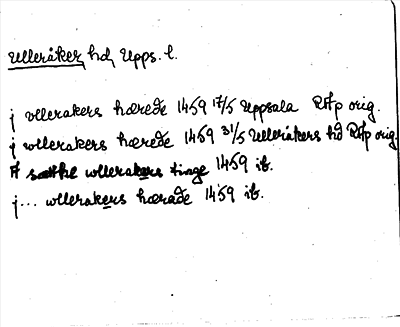 Ulleråker hd, Upps. l.
j vllerakers hærede 1459 17/5 Uppsala RAp orig.
j wllerakers hærede 1459 31/5 Ulleråkers hd RAp orig.
wllerakers tinge 1459 ib.
j... wllerakers hærade 1459 ib.